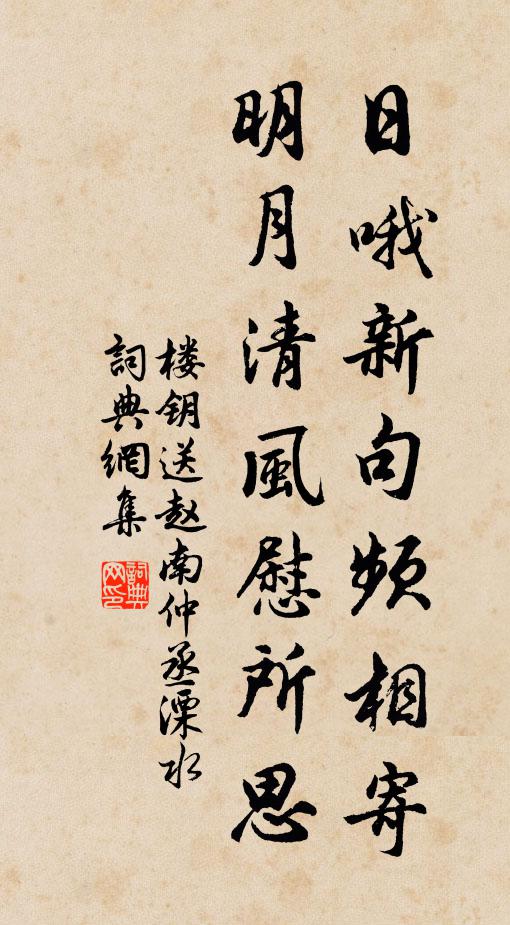 日哦新句频相寄
明月清風慰所思
楼钥送赵南仲丞溧水
詞典網集
詞典网印